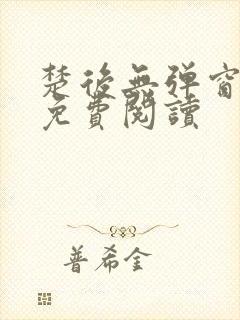 楚後無弹窗
免費閱讀
普希金